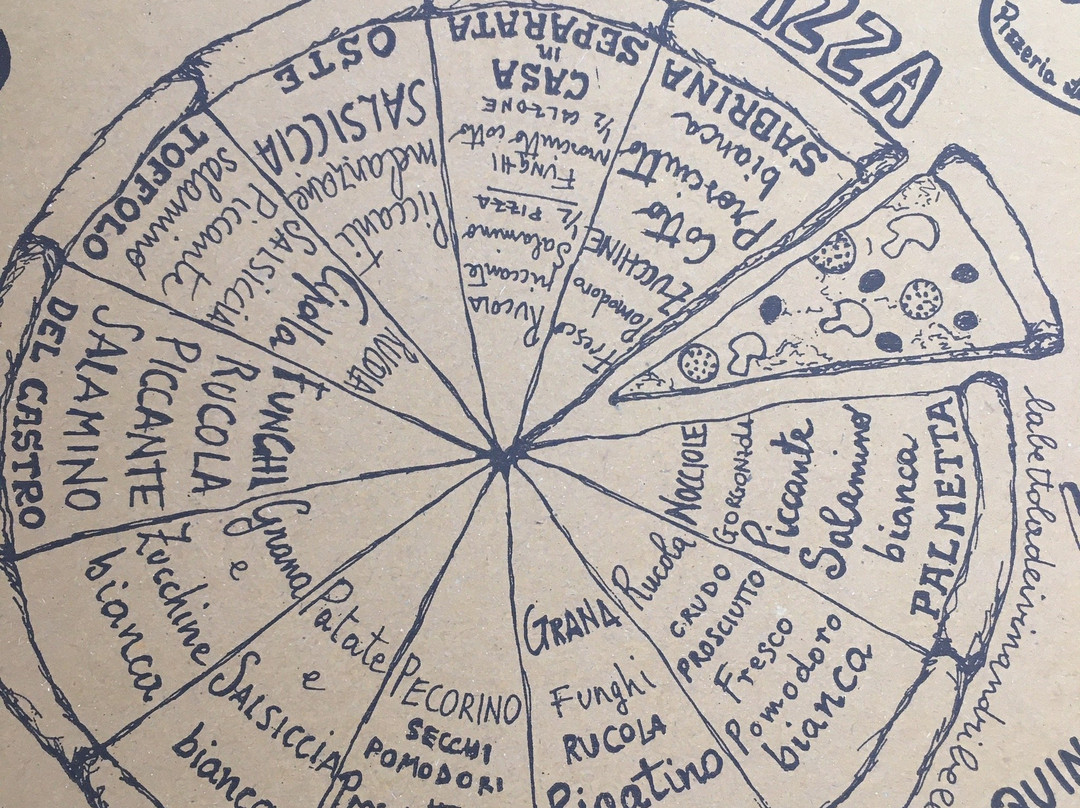 ZZA
Pizzeria
SABRINA
bianca
Prosciutto
Cotto
ZUCCHINE
Pomodoro
Fresco
SEPARATA
in
CASA
1/2 CALZONE
Prosciutto cotto
FUNGHI
1/2 PIZZA
Salamino
piccante
RUCOLA
OSTE
SALSICCIA
melanzane
Piccanti
TOFFOLO
Salamino
Piccante
SALSICCIA
Cipolla
RUCOLA
DEL CASTRO
SALAMINO
PICCANTE
RUCOLA
FUNGHI
Grana
e
Zucchine
bianca
Patate
e
SALSICCIA
bianca
PECORINO
SECCHI
POMODORI
GRANA
Funghi
RUCOLA
Rigatino
Rucola
CRUDO
PROSCIUTTO
Fresco
Pomodoro
bianca
NOCCIOLE
GORGONZOLA
Piccante
Salamino
bianca
PALMETTA